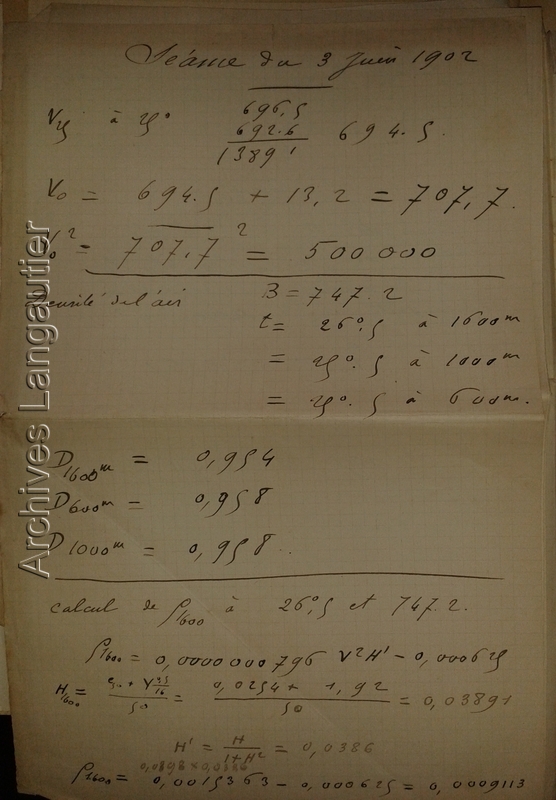 Séance du 3 Juin 1902
V25 à 25°
696.5
692.6
1389 1
694.5.
V0 = 694.5 + 13,2 = 707,7.
V0² = 707.7² = 500000
Densité de l'air
B = 747.2
t = 26°.5 à 1600m
= 25°.5 à 1000m
= 25°.5 à 600m.
D1600m = 0,954
D600m = 0,958
D1000m = 0,958..
calcul de ρ1600 à 26°,5 et 747.2.
ρ1600 = 0,0000000796 V²H' - 0,000625
= 0,0254 + 1,92 / 50 = 0,03891
H' = H / 1+H² = 0,0386
0,0398 × 0,0386
ρ1600 = 0,0015363 - 0,000625 = 0,0009113
Archives Langautier